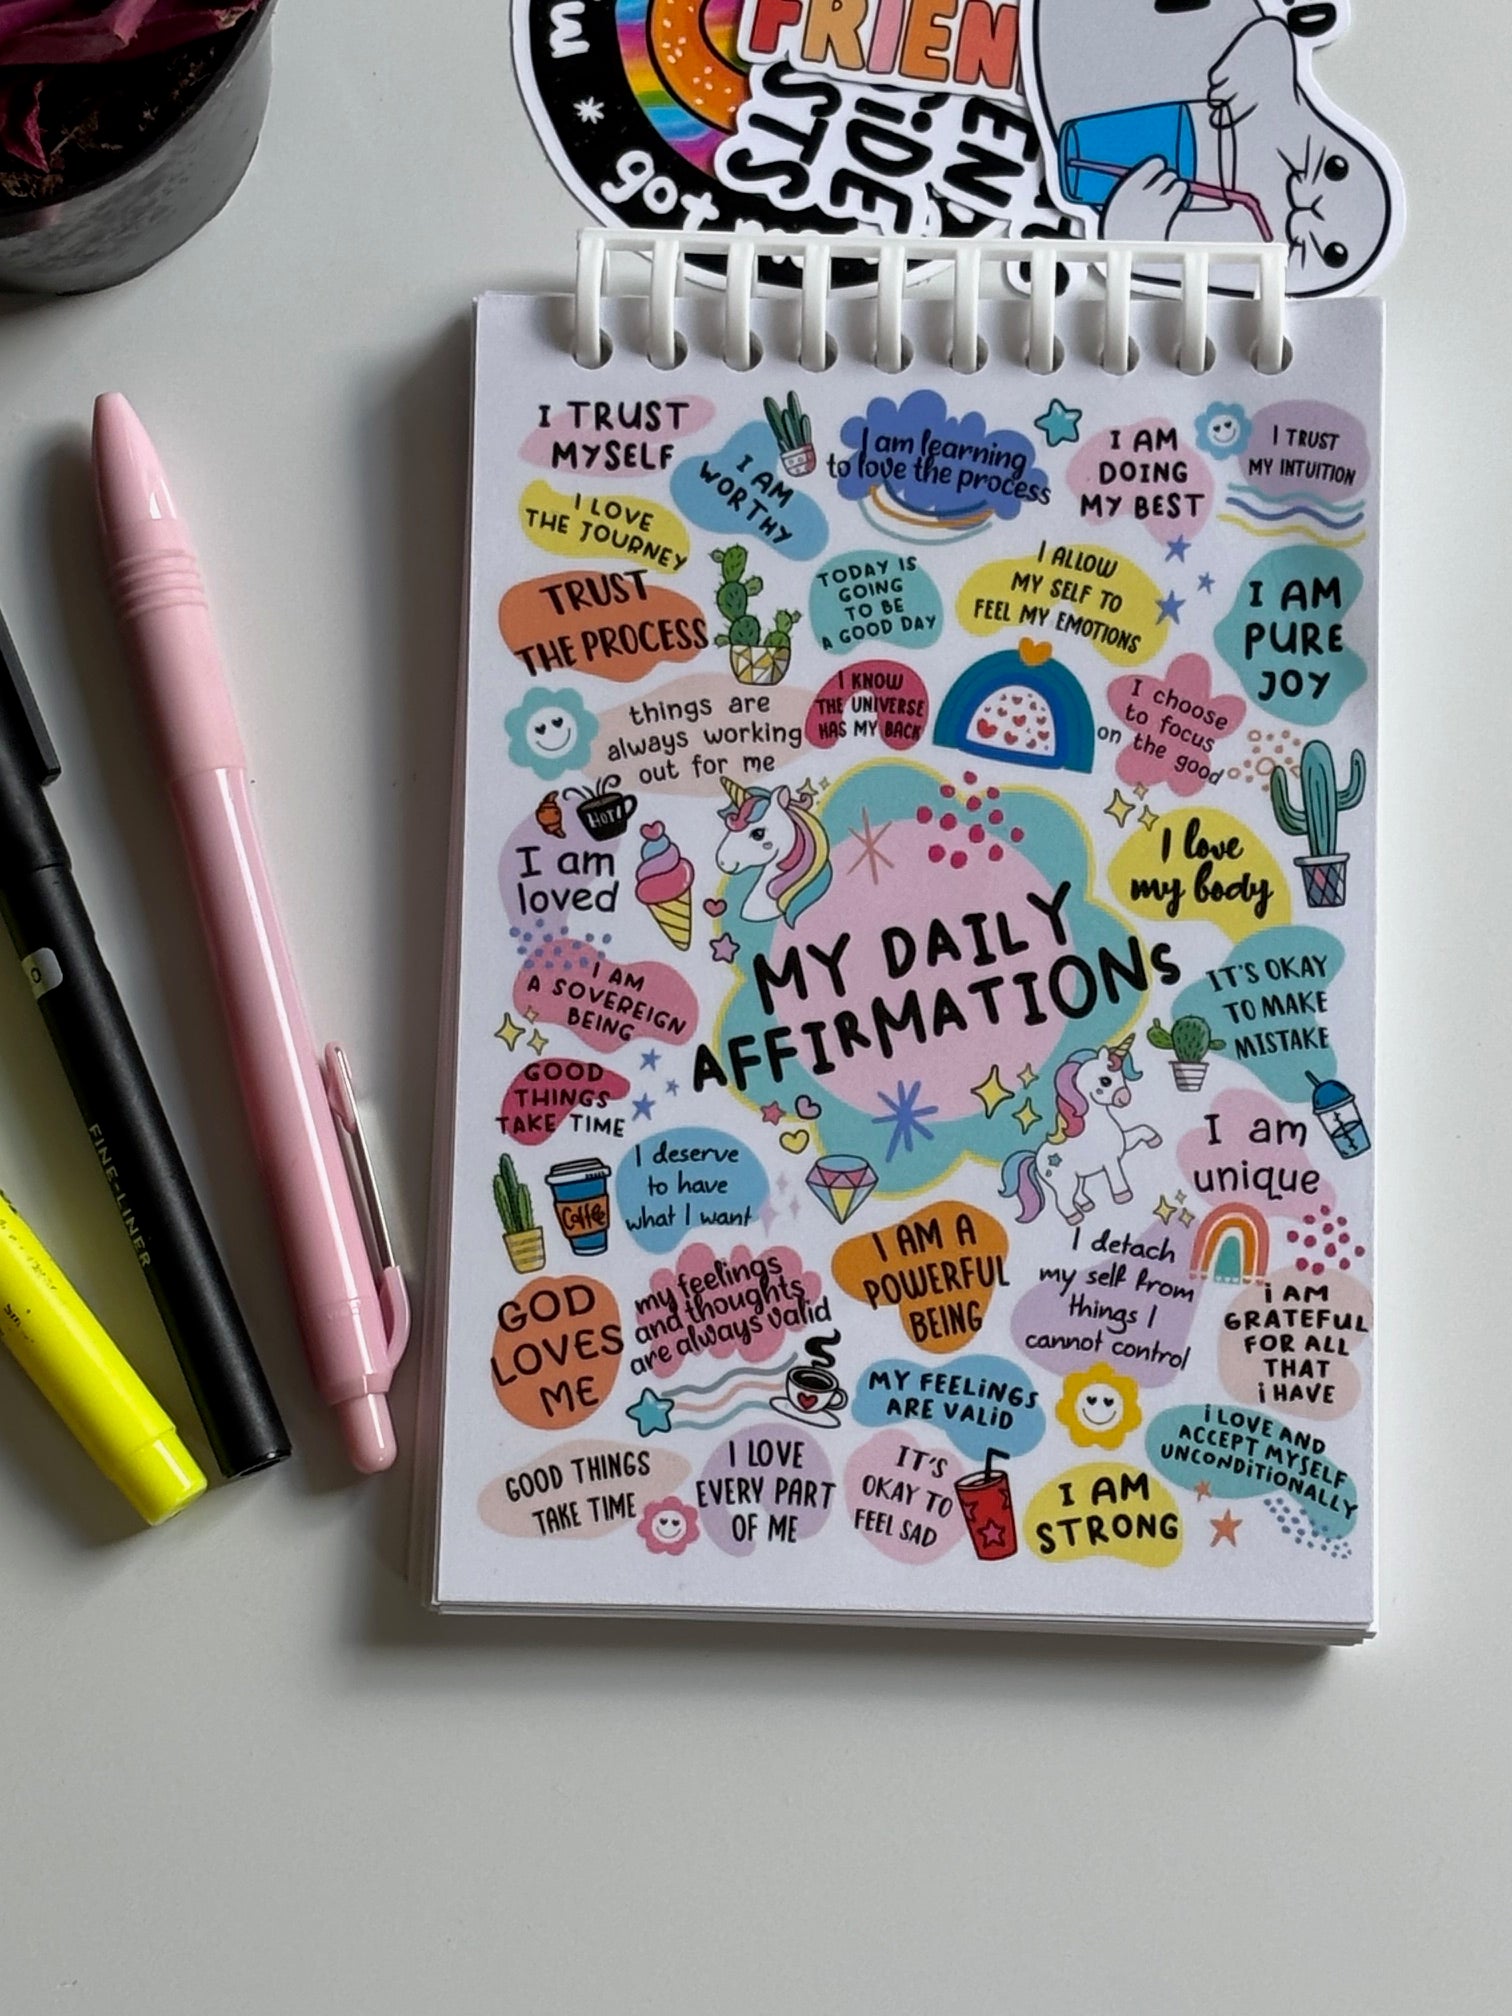 FRIEN
got
I TRUST
MYSELF
I AM
WORTHY
I am learning
to love the process
I AM
DOING
MY BEST
I TRUST
MY INTUITION
I LOVE
THE JOURNEY
TRUST
THE PROCESS
TODAY IS
GOING
TO BE
A GOOD DAY
I ALLOW
MY SELF TO
FEEL MY EMOTIONS
I AM
PURE
JOY
things are
always working
out for me
I KNOW
THE UNIVERSE
HAS MY BACK
I choose
to focus
on the good
HOT!
I am
loved
I love
my body
MY DAILY
AFFIRMATIONS
I AM
A SOVEREIGN
BEING
IT'S OKAY
TO MAKE
MISTAKE
GOOD
THINGS
TAKE TIME
I am
unique
Coffee
I deserve
to have
what I want
I AM A
POWERFUL
BEING
I detach
my self from
things I
cannot control
GOD
LOVES
ME
my feelings
and thoughts
are always valid
i AM
GRATEFUL
FOR ALL
THAT
i HAVE
MY FEELiNGS
ARE VALiD
i LOVE AND
ACCEPT MYSELF
UNCONDiTiONALLY
GOOD THINGS
TAKE TIME
I LOVE
EVERY PART
OF ME
IT'S
OKAY TO
FEEL SAD
I AM
STRONG
FINE-LINER